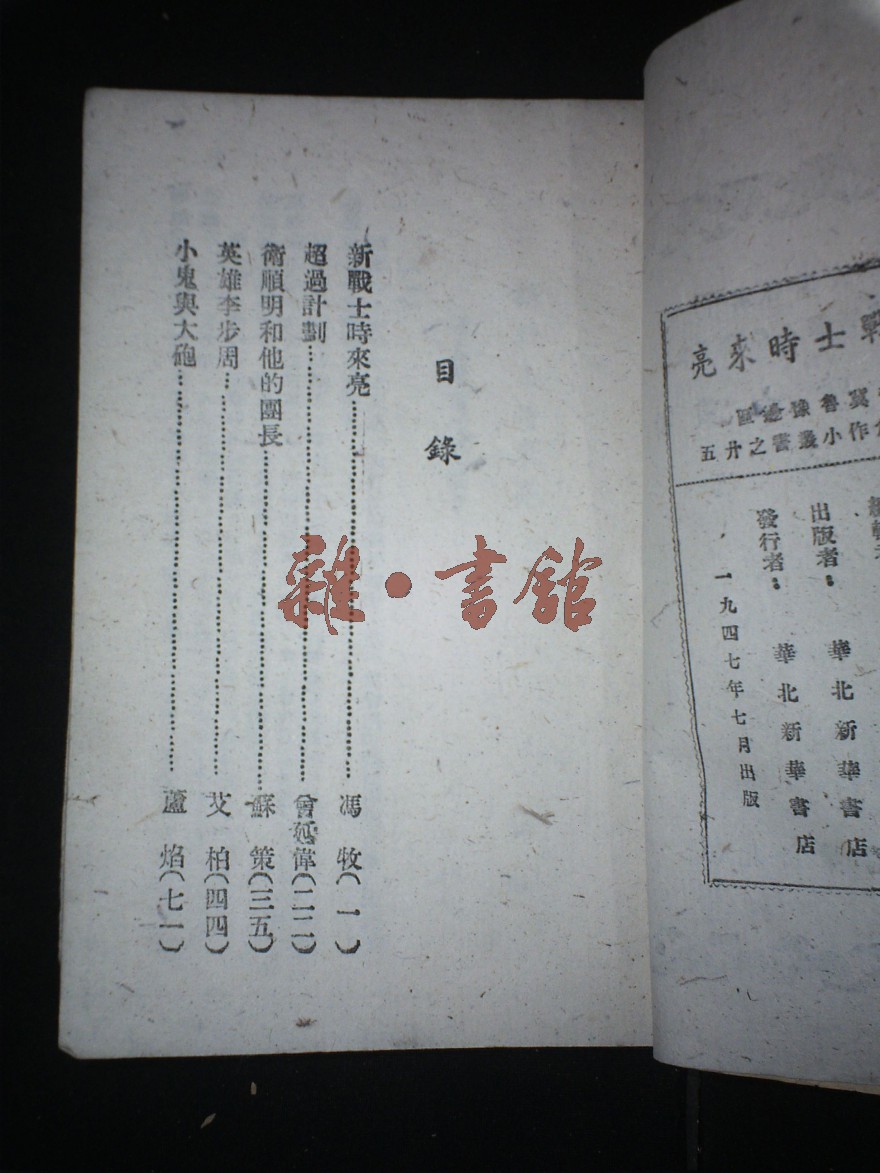 戰士時來亮
冀魯豫邊區
作小叢書之廿五
出版者：華北新華書店
發行者：華北新華書店
一九四七年七月出版
目錄
新戰士時來亮……馮牧（一）
超過計劃……曾延偉（二二）
衛順明和他的團長……蘇策（三五）
英雄李步周……艾柏（四四）
小鬼與大砲……蘆焰（七一）
雜·書館